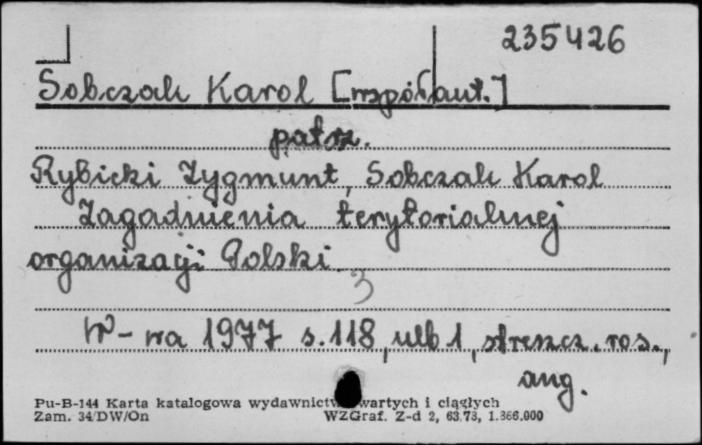 235426
Sobczak Karol [współaut.]
patrz.
Rybicki Zygmunt, Sobczak Karol
Zagadnienia terytorialnej
organizacji Polski.
3
W-wa 1977 s.118, ulb 1, streszcz. ros.,
ang.
Pu-B-144 Karta katalogowa wydawnictw zwartych i ciągłych
Zam. 34/DW/On WZGraf. Z-d 2, 63.73, 1.866.000